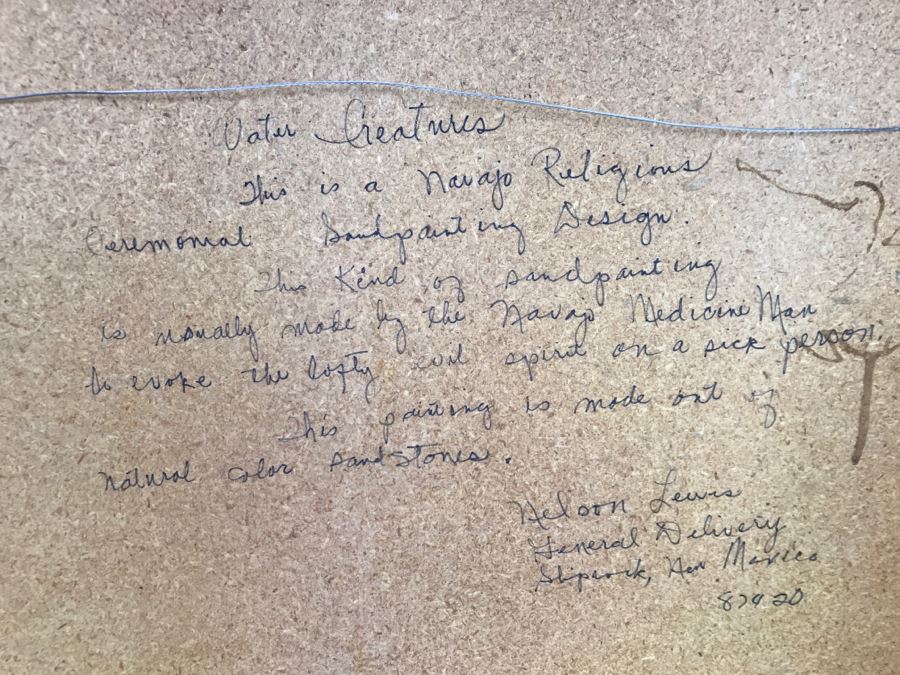 Water Creatures
This is a Navajo Religious
Ceremonial Sandpainting Design.
This Kind of sandpainting
is usually made by the Navajo Medicine Man
to evoke the lofty evil spirit on a sick person.
This painting is made out of
natural color sandstones.
Nelson Lewis
General Delivery
Shiprock, New Mexico
87420